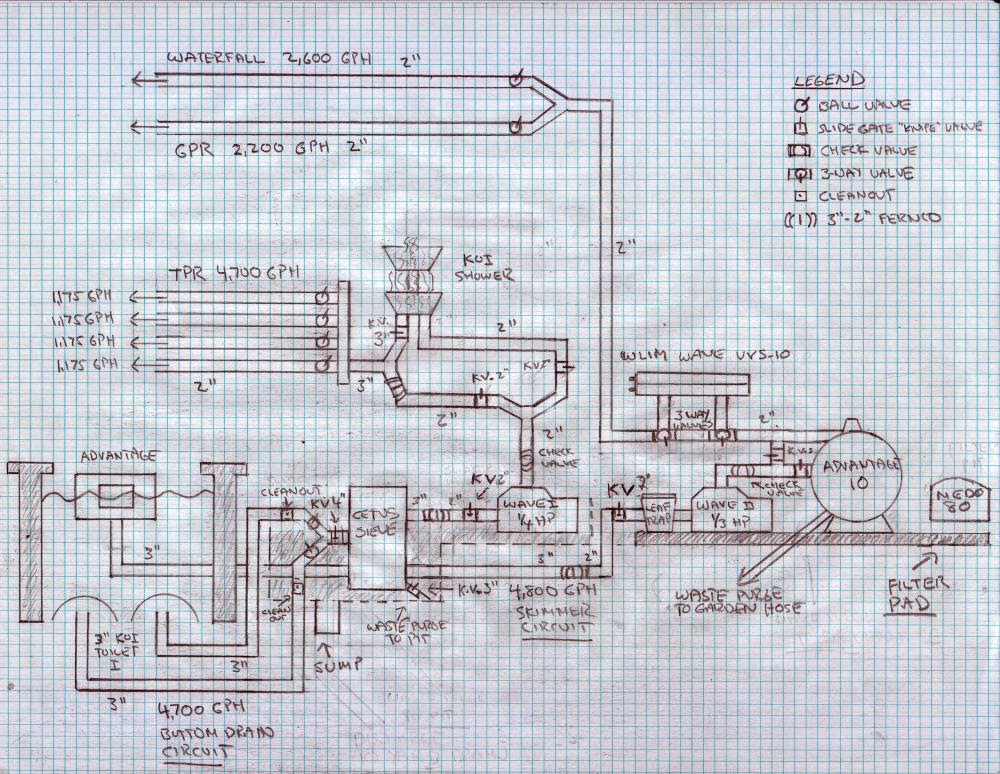 WATERFALL 2,600 GPH 2"
GPR 2,200 GPH 2"
LEGEND
BALL VALVE
SLIDE GATE "KNIFE" VALVE
CHECK VALVE
3-WAY VALVE
CLEANOUT
3"-2" FERNCO
2"
TPR 4,700 GPH
1,175 GPH
1,175 GPH
1,175 GPH
1,175 GPH
2"
KOI
SHOWER
K.V.
3"
2"
3"
KV-2"
KV2"
2"
2"
CHECK
VALVE
WLIM WAVE UVS-10
3-WAY
VALVES
2"
K.V.2
CHECK
VALVE
ADVANTAGE
10
MEDO
80
ADVANTAGE
3"
CLEANOUT
KV4"
CETUS
SIEVE
3"
2"
KV2"
WAVE I
1/4 HP
KV 3"
LEAF
TRAP
WAVE II
1/3 HP
3"
2"
K.V.3"
4,800 GPH
SKIMMER
CIRCUIT
WASTE PURGE
TO GARDEN HOSE
FILTER
PAD
CLEAN
OUT
WASTE PURGE
TO PIT
SUMP
3" KOI
TOILET
I
3"
3"
4,700 GPH
BOTTOM DRAIN
CIRCUIT